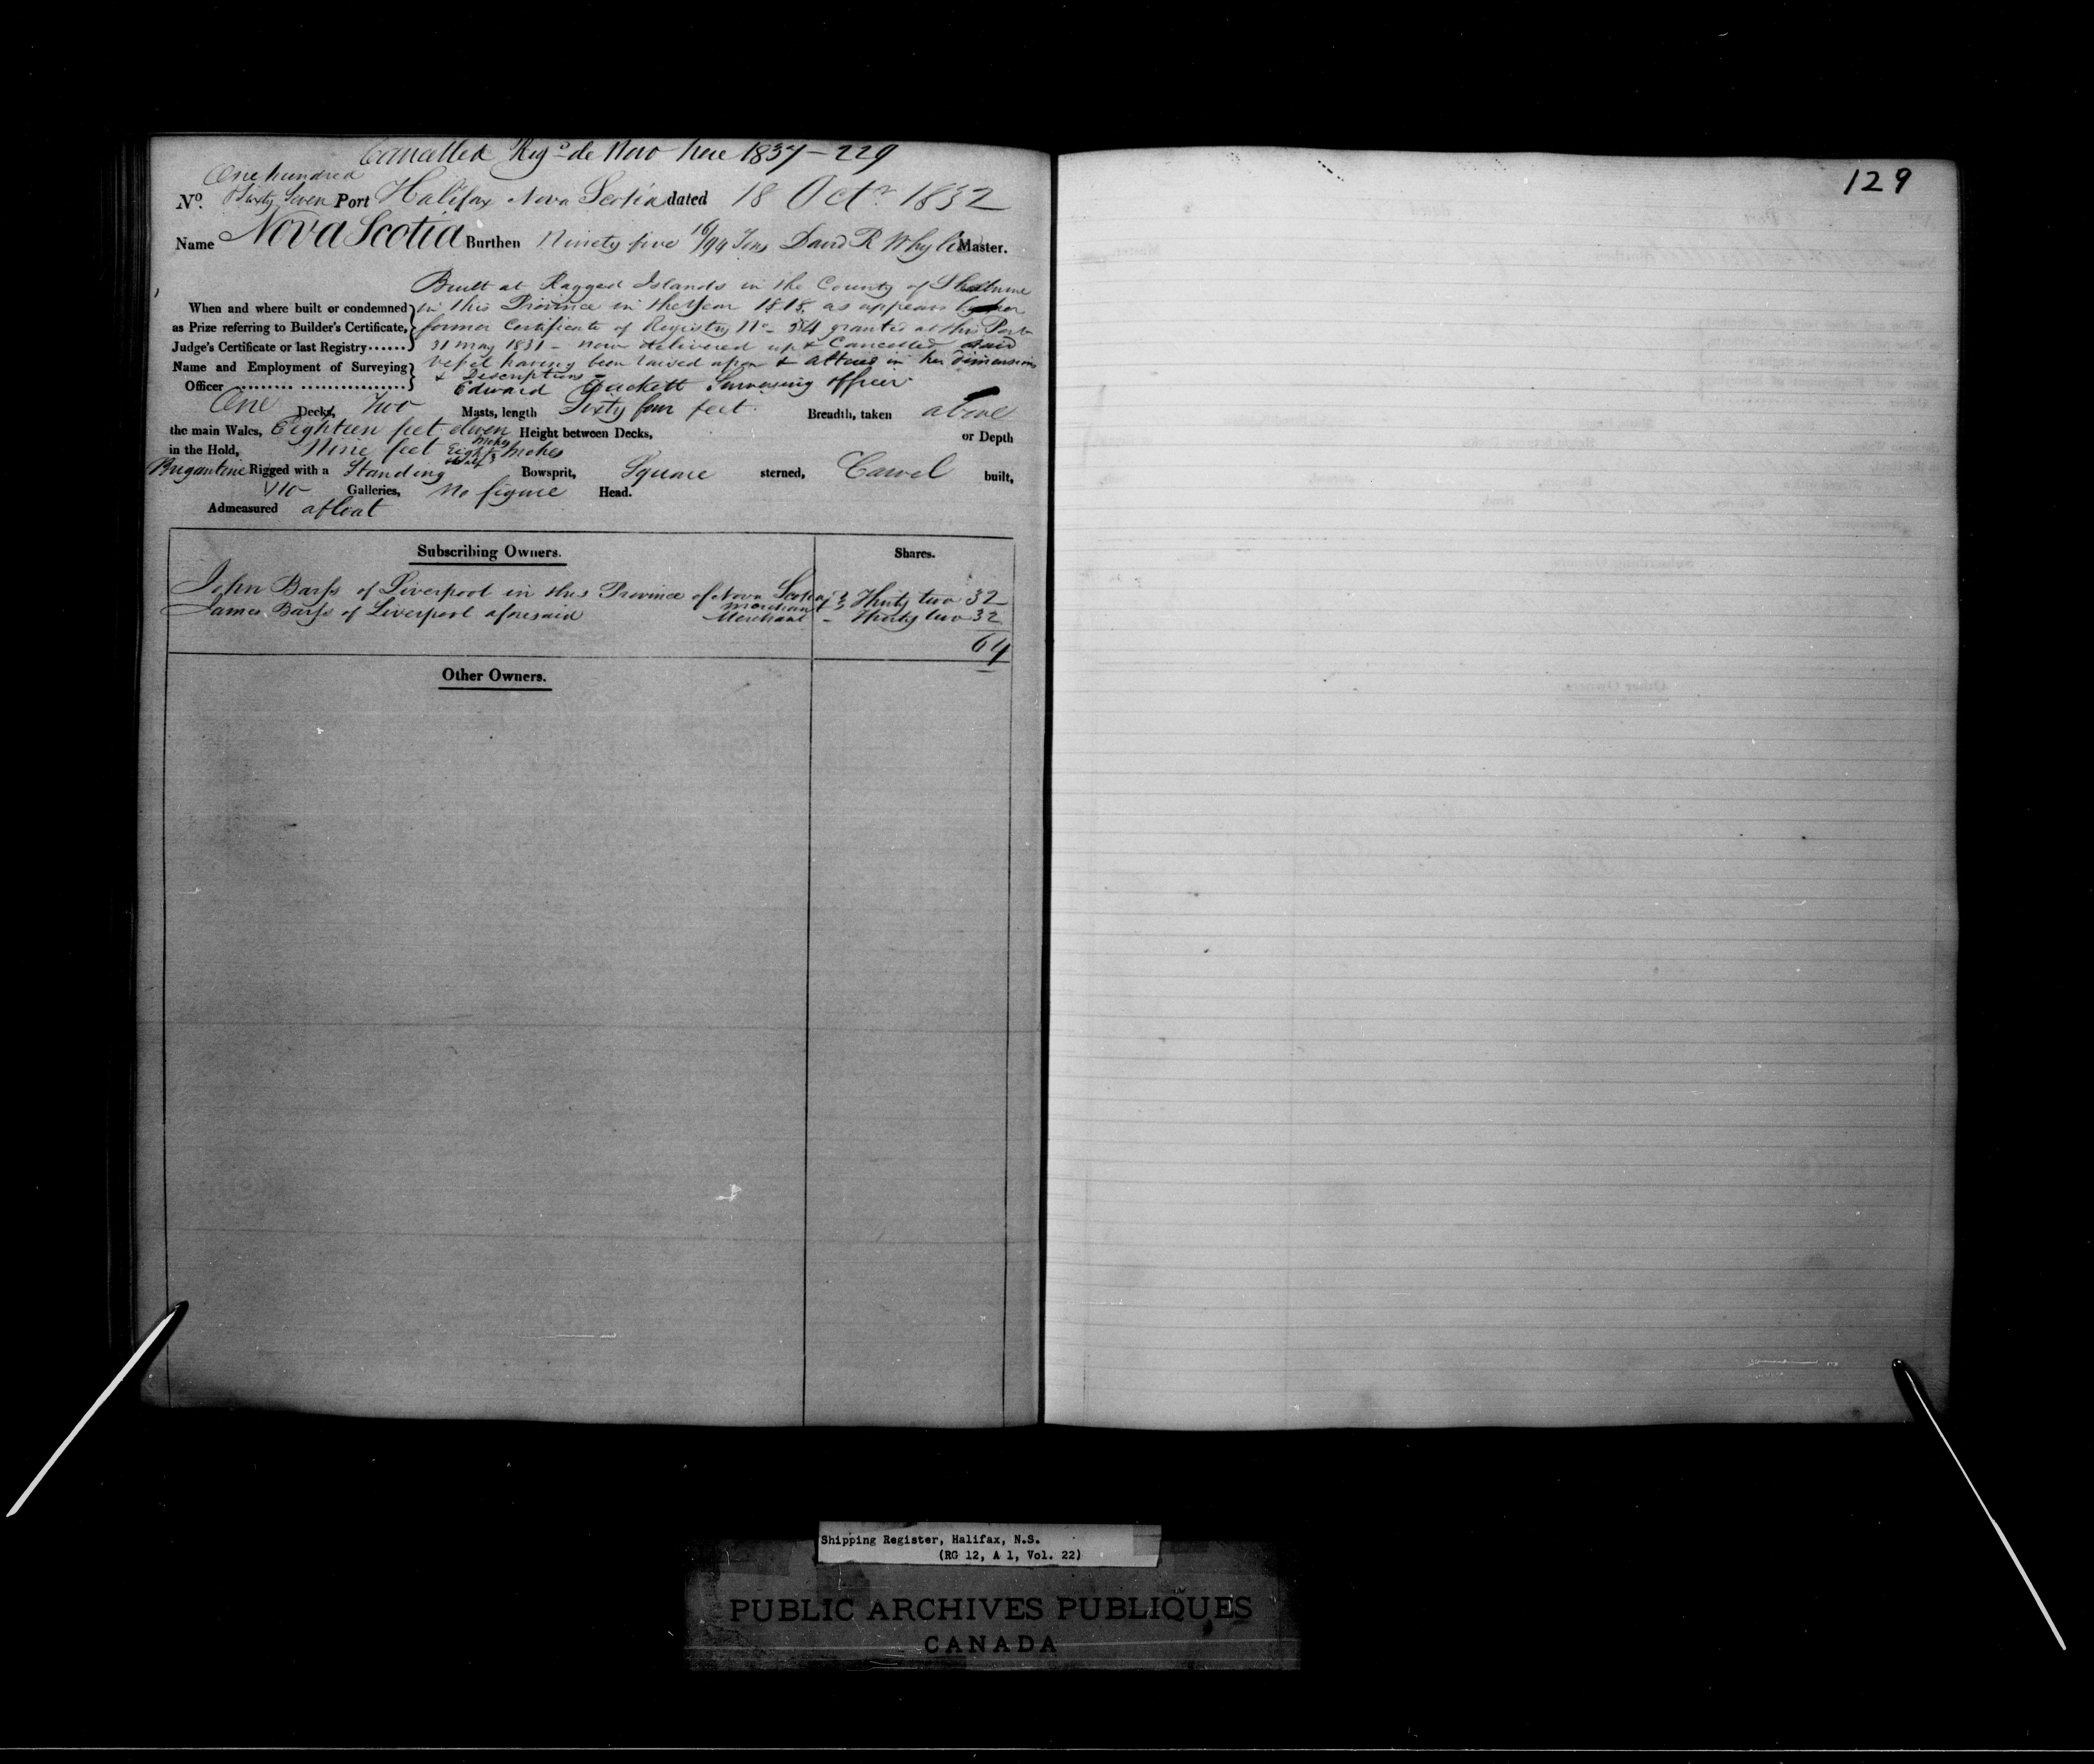 Cancelled Reg.d de Novo here 1837 - 229
One hundred
No. Sixty Seven Port Halifax Nova Scotia dated 18 Octr. 1832
Name Nova Scotia Burthen Ninety five 16/94 Tons David R Whyle Master.
Built at Ragged Islands in the County of Shelburne
When and where built or condemned in this Province in the Year 1818, as appears by her
as Prize referring to Builder's Certificate, former Certificate of Registry No. 54 granted at this Port
Judge's Certificate or last Registry...... 31 May 1831 - now delivered up & Cancelled said
Name and Employment of Surveying Vessel having been raised upon & altered in her dimensions
& Description -
Officer ......... ................. Edward Duckett Surveying officer
One Decks, Two Masts, length Sixty four feet Breadth, taken above
the main Wales, Eighteen feet eleven inches Height between Decks, or Depth
in the Hold, Nine feet Eight inches
Brigantine Rigged with a Standing Bowsprit, Square sterned, Carvel built,
No Galleries, No figure Head.
Admeasured afloat
Subscribing Owners. Shares.
John Barss of Liverpool in this Province of Nova Scotia Merchant Thirty two 32
James Barss of Liverpool aforesaid Merchant - Thirty two 32
64
Other Owners.
129
Shipping Register, Halifax, N.S.
(RG 12, A 1, Vol. 22)
PUBLIC ARCHIVES PUBLIQUES
CANADA